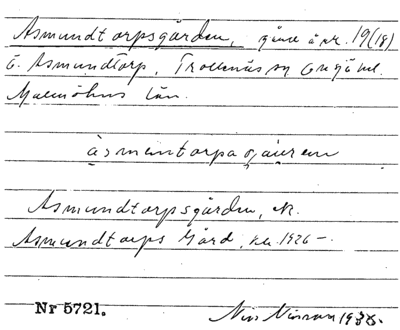 Asmundtorpsgården, gård å nr. 19 (18)
i Asmundtorp, Trollenäs sn Onsjö hd.
Malmöhus län.
àsmentorpagáuren
Asmundtorpsgården, ek.
Asmundtorps Gård, rkl. 1926 –.
Nr 5721. Nils Nilsson 1938.